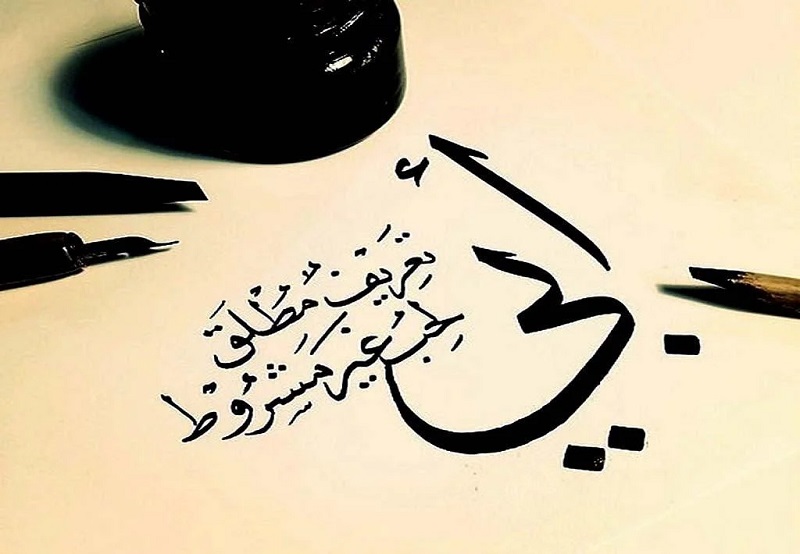 أبي
تَعريف مُطْلَق
لِحُب غير مَشِرُوط